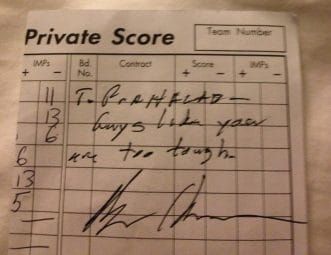 Private Score
Team Number
IMPs Bd. No. Contract Score IMPs
+ - + - + -
11 To PRAHALAD -
13 Guys like you
6
6 are too tough.
13
5